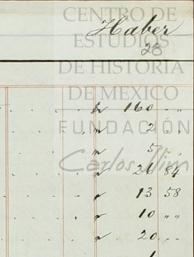 CENTRO DE
ESTUDIOS
DE HISTORIA
DE MEXICO
FUNDACIÓN
Carlos Slim
Haber
28
160 ..
2 ..
5 ..
26 84
13 58
10 ..
20 ..